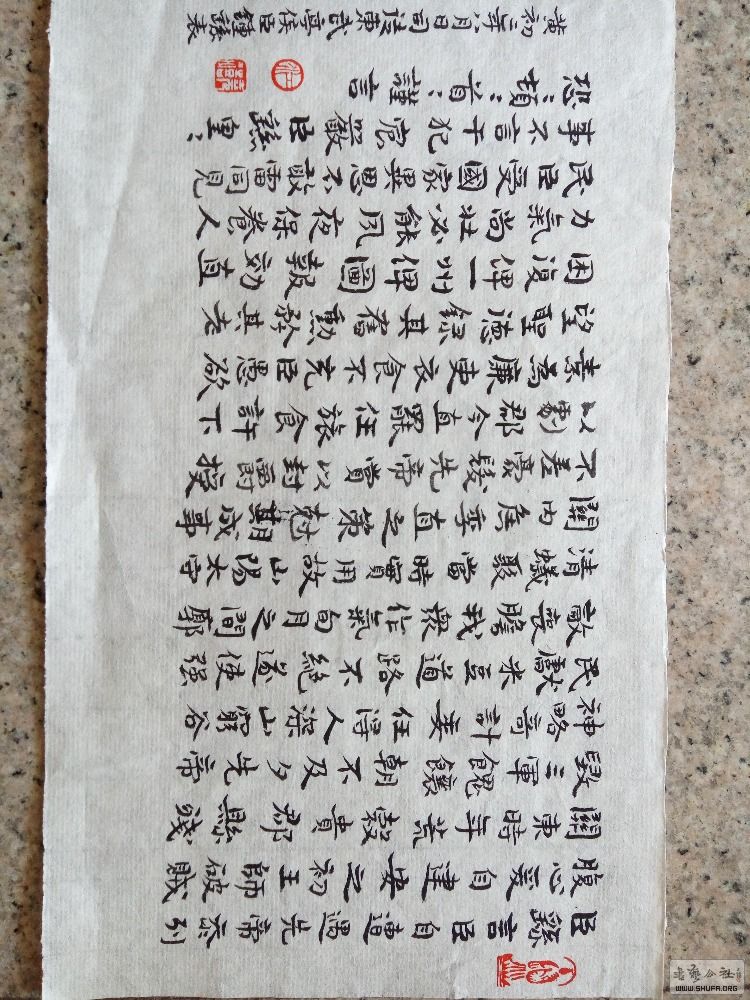 臣繇言臣自遭遇先帝忝列
腹心爰自建安之初王師破賊
關東時年荒穀貴郡縣殘
毀三軍餽饟朝不及夕先帝
神略奇計委任得人深山窮谷
民獻米豆道路不絕遂使強
敵喪膽我衆作氣旬月之間廓
清蟻聚當時實用故山陽太守
關內侯季直之策尅期成事
不差豪髮先帝賞以封爵授
以劇郡今直罷任旅食許下
素為廉吏衣食不充臣愚欲
望聖德錄其舊勳矜其老
困復俾一州俾圖報効直
力氣尚壯必能夙夜保養人
民臣受國家異恩不敢雷同見
事不言干犯宸嚴臣繇皇:
恐:頓:首:謹言
黃初二年八月日司徒東武亭侯臣鍾繇表
WWW.SHUFA.ORG